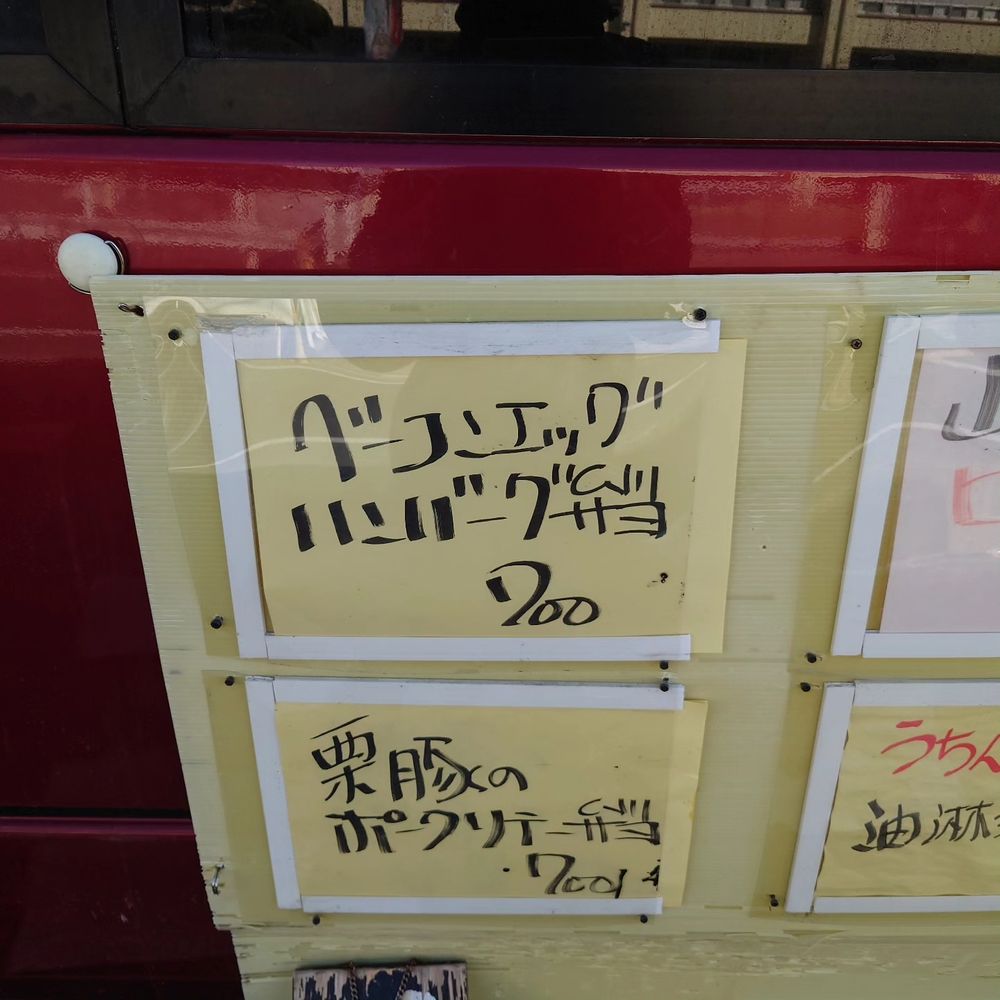 ベーコンエッグ
ハンバーグ弁当
700
栗豚の
ポークソテー弁当
700
うちん
油淋